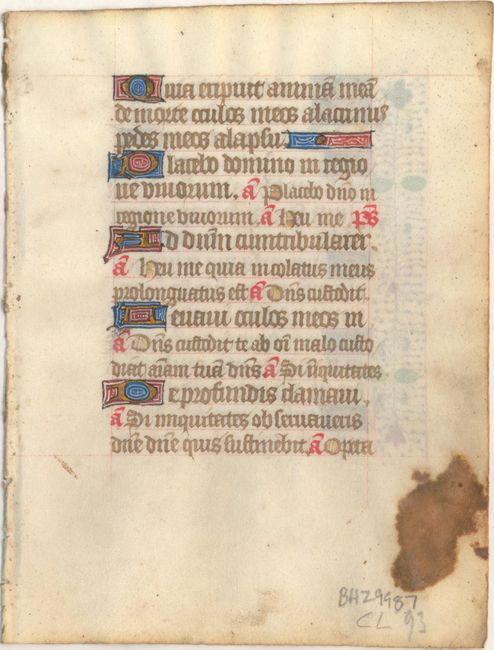 Quia eripuit animā meā
de morte oculos meos a lacrimis
pedes meos a lapsu.
Placebo domino in regio
ne vivorum. A Placebo dn̄o in
regione vivorum. A Heu me ps̄
Ad dn̄m cum tribularer.
A Heu me quia incolatus meus
prolonguatus est A Dn̄s custodit.
Levavi oculos meos in
A Dn̄s custodit te ab on̄i malo custo
diat aīam tuā dn̄s A Si īiquitates
De profundis clamavi.
A Si iniquitates observaveris
dn̄e dn̄e quis sustinebit. A Opera
BHZ9987
CL 93